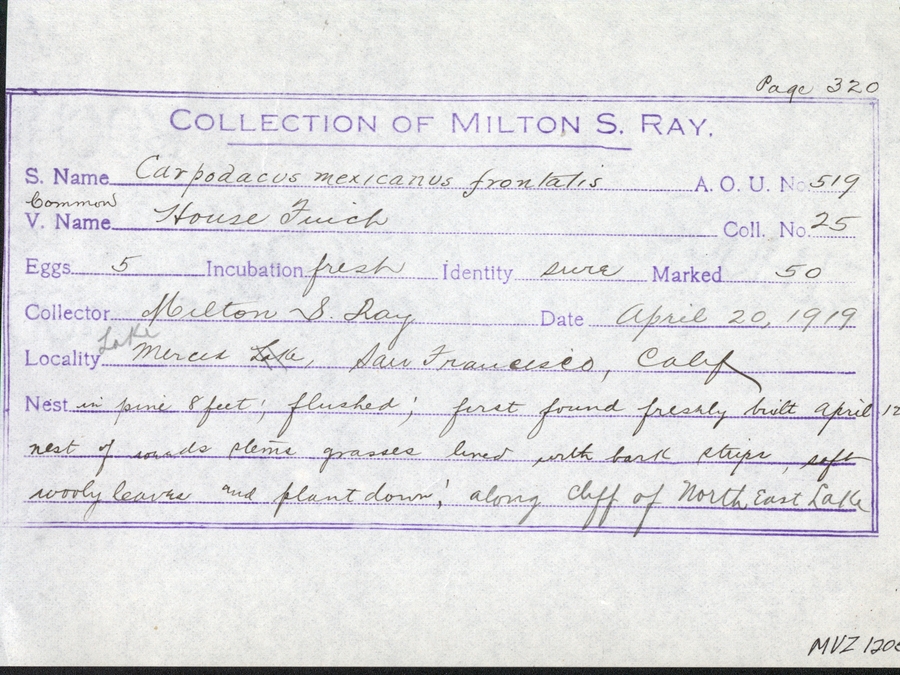 Page 320
COLLECTION OF MILTON S. RAY.
S. Name Carpodacus mexicanus frontalis A. O. U. No. 519
Common
V. Name House Finch Coll. No. 25
Eggs 5 Incubation fresh Identity sure Marked 50
Collector Milton S. Ray Date April 20, 1919
Lake
Locality Merced Lake, San Francisco, Calif
Nest in pine 8 feet; flushed; first found freshly built April 12
nest of stems grasses lined with bark strips, soft
wooly leaves and plant down; along cliff of North East Lake
MVZ 120